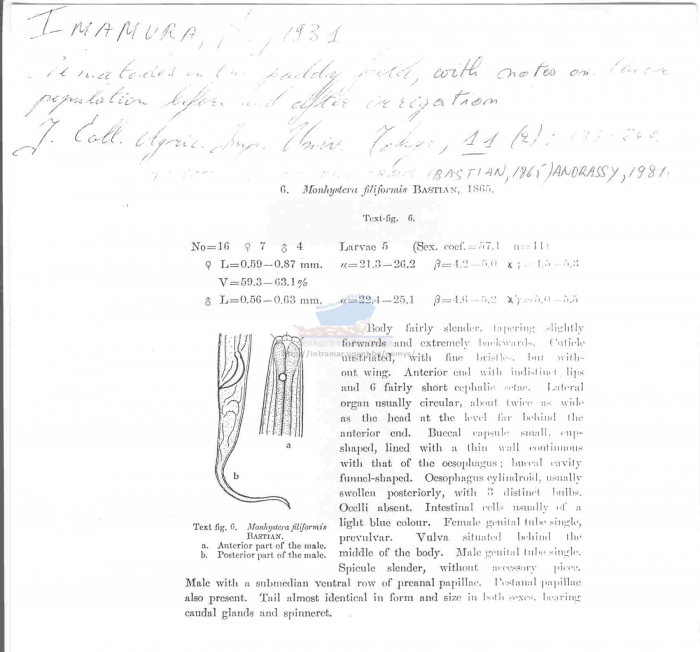 IMAMURA, 1931
in the paddy field, with notes on
population before and after irrigation
J. Coll. Agric. Imp. Univ. Tokyo, 11 (2):
(BASTIAN, 1865) ANDRASSY, 1981
6. Monhystera filiformis BASTIAN, 1865.
Text-fig. 6.
No=16 ♀ 7 ♂ 4 Larvae 5 (Sex. coef.=57.1 n=11)
♀ L=0.59–0.87 mm. α=21.3–26.2 β=4.2–5.0 γ=4.5–5.3
V=59.3–63.1%
♂ L=0.56–0.63 mm. α=22.4–25.1 β=4.6–5.2 γ=5.0–5.5
Body fairly slender, tapering slightly
forwards and extremely backwards. Cuticle
unstriated, with fine bristles, but with-
out wing. Anterior end with indistinct lips
and 6 fairly short cephalic setae. Lateral
organ usually circular, about twice as wide
as the head at the level far behind the
anterior end. Buccal capsule small, cup-
shaped, lined with a thin wall continuous
with that of the oesophagus; buccal cavity
funnel-shaped. Oesophagus cylindroid, usually
swollen posteriorly, with 3 distinct bulbs.
Ocelli absent. Intestinal cells usually of a
light blue colour. Female genital tube single,
prevulvar. Vulva situated behind the
middle of the body. Male genital tube single.
Spicule slender, without accessory piece.
Male with a submedian ventral row of preanal papillae. Postanal papillae
also present. Tail almost identical in form and size in both sexes, bearing
caudal glands and spinneret.
a
b
Text fig. 6. Monhystera filiformis
BASTIAN.
a. Anterior part of the male.
b. Posterior part of the male.